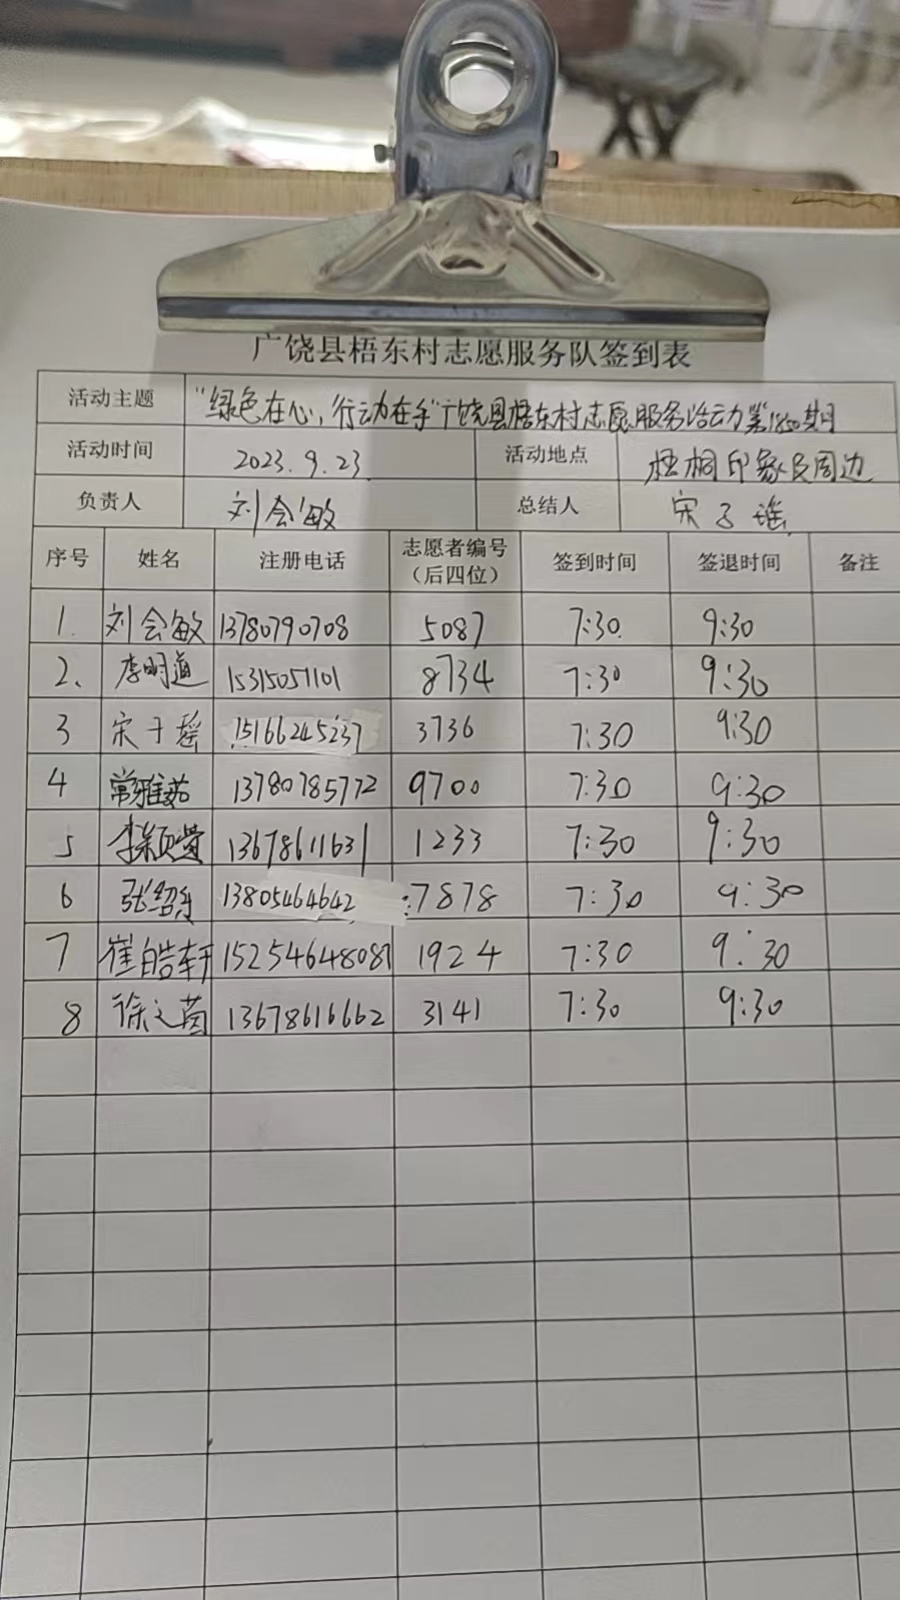 广饶县梧东村志愿服务队签到表
活动主题 "绿色在心,行动在手"广饶县梧东村志愿服务活动第1850期
活动时间 2023.9.23 活动地点 梧桐印象及周边
负责人 刘会敏 总结人 宋子瑶
序号 姓名 注册电话 志愿者编号(后四位) 签到时间 签退时间 备注
1. 刘会敏 13780790708 5087 7:30 9:30
2、 李明道 15315051101 8734 7:30 9:30
3 宋子瑶 15166245237 3736 7:30 9:30
4 常雅茹 13780785772 9700 7:30 9:30
5 李颖萱 13678611631 1233 7:30 9:30
6 张绍 13805464642 7878 7:30 9:30
7 崔皓轩 15254648087 1924 7:30 9:30
8 徐之茵 13678616662 3141 7:30 9:30